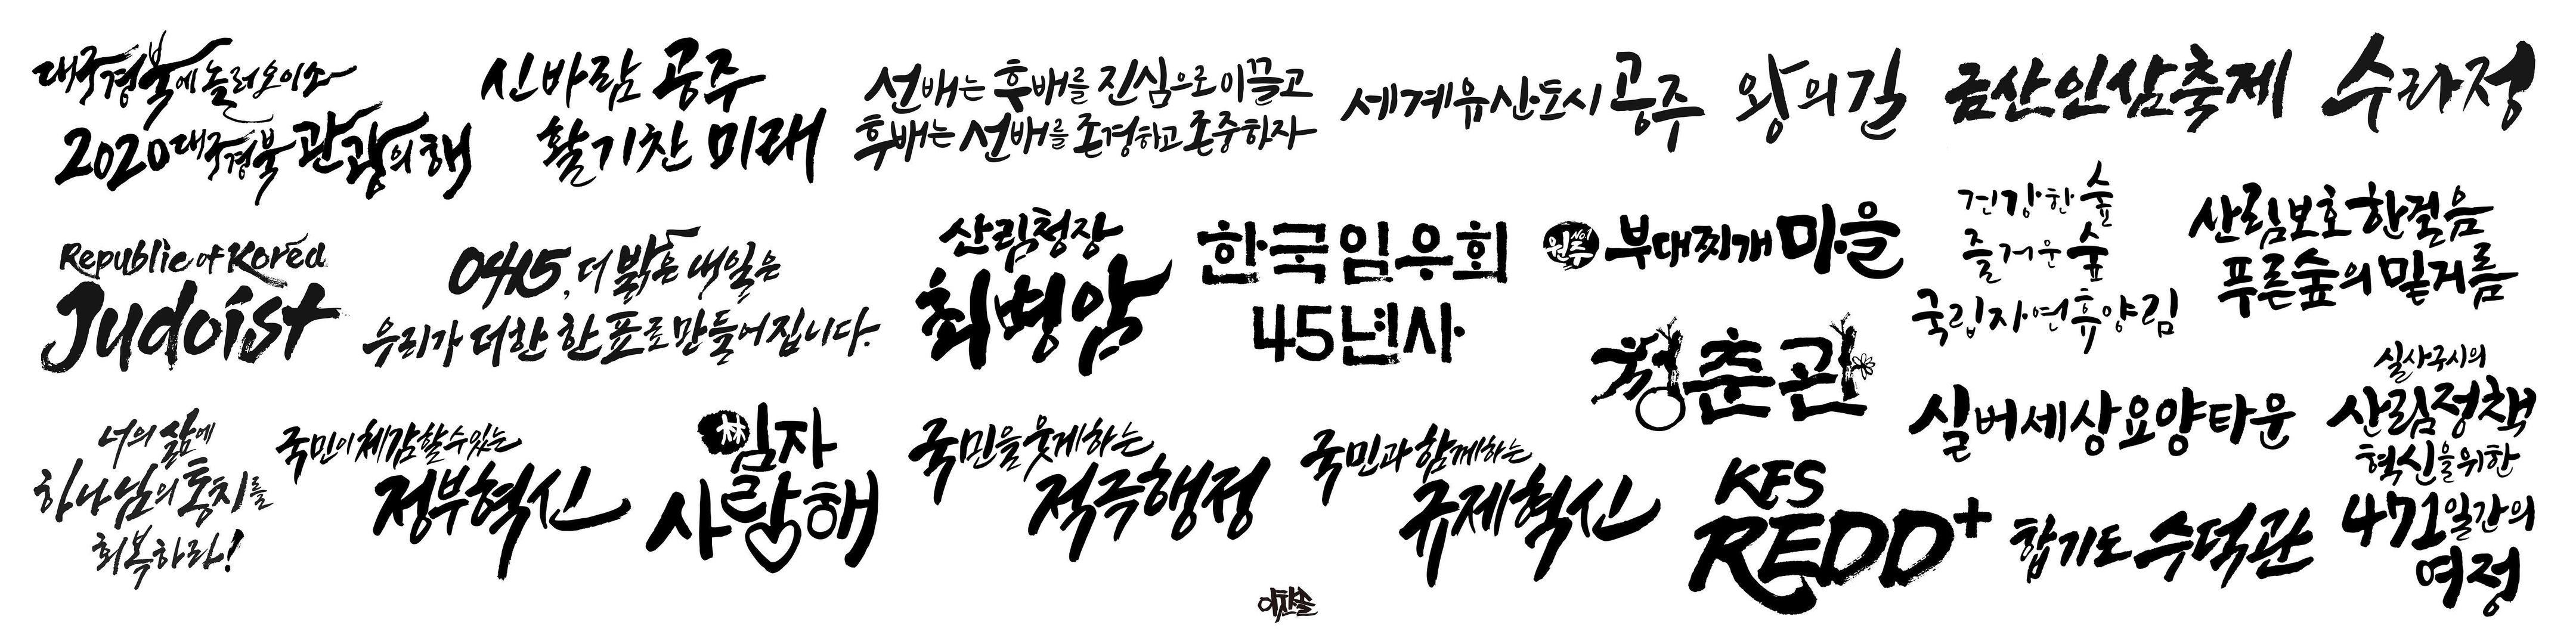 대구경북에 놀러오이소
2020 대구경북 관광의 해
신바람 공주
활기찬 미래
선배는 후배를 진심으로 이끌고
후배는 선배를 존경하고 존중하자
세계유산도시 공주
왕의 길
금산인삼축제
수라정
Republic of Korea
Judoist
0415, 더 밝은 내일은
우리가 더한 한 표로 만들어집니다.
산림청장
최병암
한국임우회
45년사
원주 No.1 부대찌개 마을
건강한 숲
즐거운 숲
국립자연휴양림
산림보호 한걸음
푸른숲의 밑거름
청춘관
실버세상요양타운
실사구시의
산림정책
혁신을 위한
471일간의
여정
너의 삶에
하나님의 통치를
회복하라!
국민이 체감할 수 있는
정부혁신
林 임자
사랑해
국민을 웃게하는
적극행정
국민과 함께하는
규제혁신
KFS
REDD+
합기도 수덕관
이찬솔